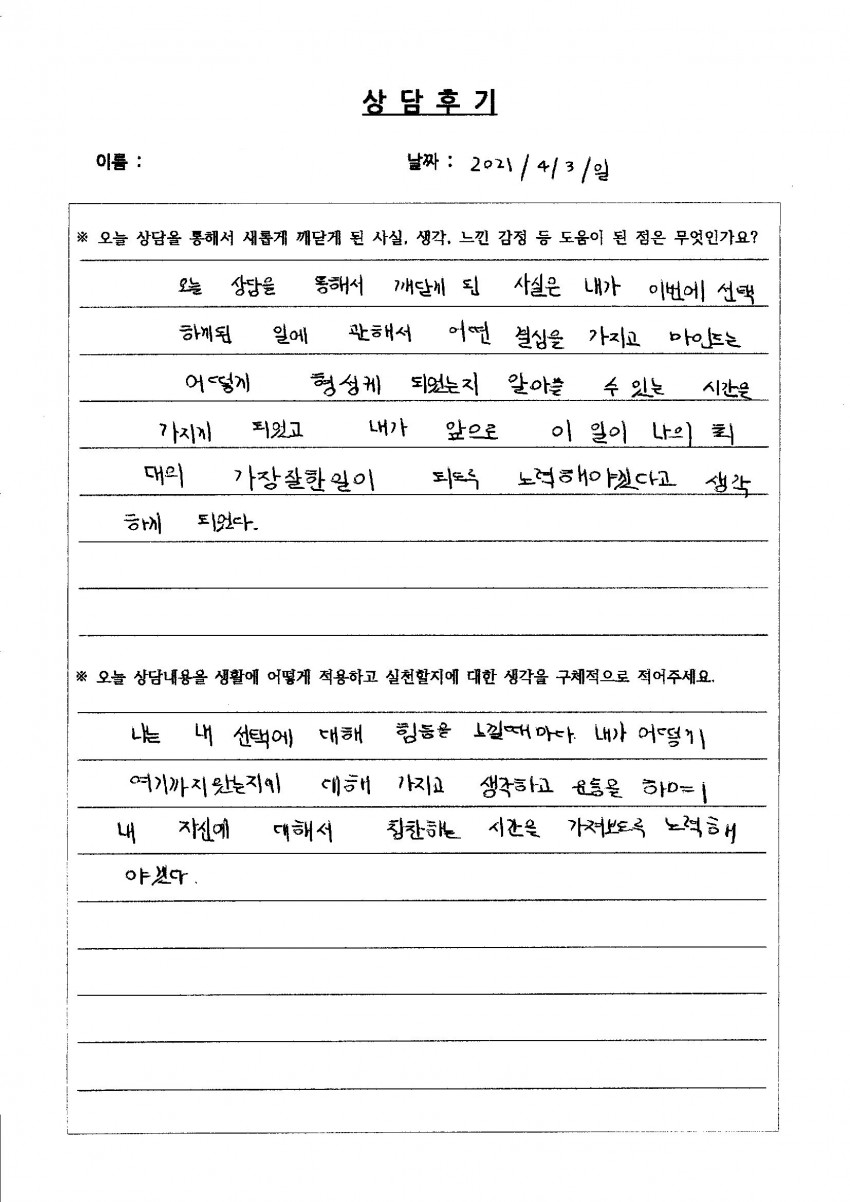 상 담 후 기
이름 :
날짜 : 2021 / 4 / 3 / 일
※ 오늘 상담을 통해서 새롭게 깨닫게 된 사실, 생각, 느낀 감정 등 도움이 된 점은 무엇인가요?
오늘 상담을 통해서 깨닫게 된 사실은 내가 이번에 선택
하게된 일에 관해서 어떤 결심을 가지고 마인드는
어떻게 형성케 되었는지 알아볼 수 있는 시간을
가지게 되었고 내가 앞으로 이 일이 나의 최
대의 가장잘한일이 되도록 노력해야겠다고 생각
하게 되었다.
※ 오늘 상담내용을 생활에 어떻게 적용하고 실천할지에 대한 생각을 구체적으로 적어주세요.
나는 내 선택에 대해 힘듦을 느낄때마다 내가 어떻게
여기까지왔는지에 대해 가지고 생각하고 운동을 하며
내 자신에 대해서 칭찬하는 시간을 가져보도록 노력해
야겠다.